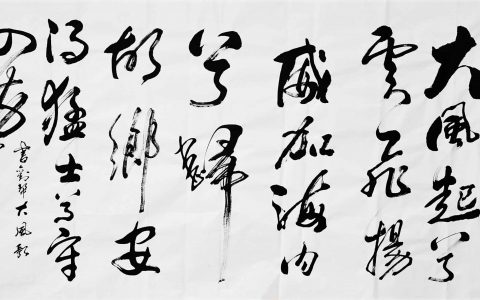 大風起兮
雲飛揚
威加海內
兮歸
故鄉安
得猛士兮守
四方
書劉邦大風歌